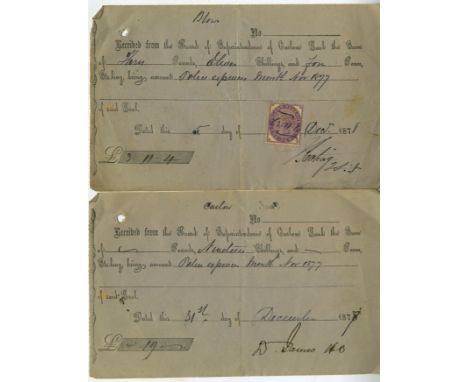 Blow
No
Received from the Board of Superintendence of Carlow Gaol the Sum
of Three Pounds, Eleven Shillings and four Pence,
Sterling being amount Police expenses Month Nov 1877
of said Gaol.
Dated this 5 day of Decr 1878
£ 3-11-4
Carlow
No
Received from the Board of Superintendence of Carlow Gaol the Sum
of Pounds, Nineteen Shillings and Pence,
Sterling being amount Police expenses Month Nov 1877
of said Gaol.
Dated this 31st day of December 1877
£ -19-
D. James H.C